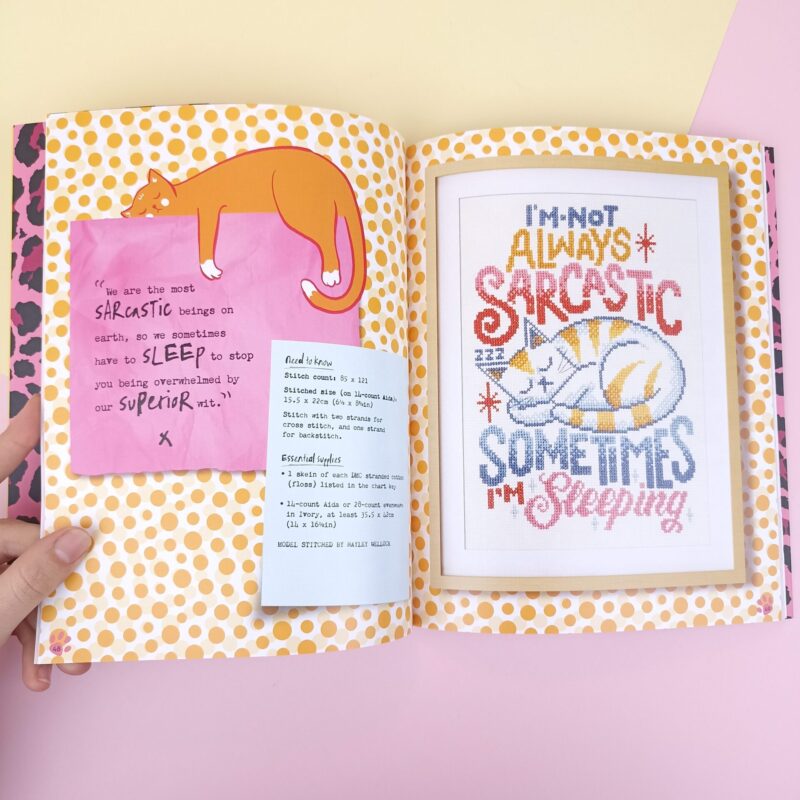 “We are the most
SARCASTIC beings on
earth, so we sometimes
have to SLEEP to stop
you being overwhelmed by
our SUPERIOR wit.”
X
Need to know
Stitch count: 85 x 121
Stitched size (on 14-count Aida):
15.5 x 22cm
Stitch with two strands for
cross stitch, and one strand
for backstitch.
Essential supplies
• 1 skein of each DMC stranded cotton
(floss) listed in the chart key
• 14-count Aida or 28-count evenweave
in Ivory, at least 35.5 x 42cm
MODEL STITCHED BY HAYLEY WELLOCK
48
I'M·NOT
ALWAYS
SARCASTIC
ZZZ
SOMETIMES
I'M Sleeping